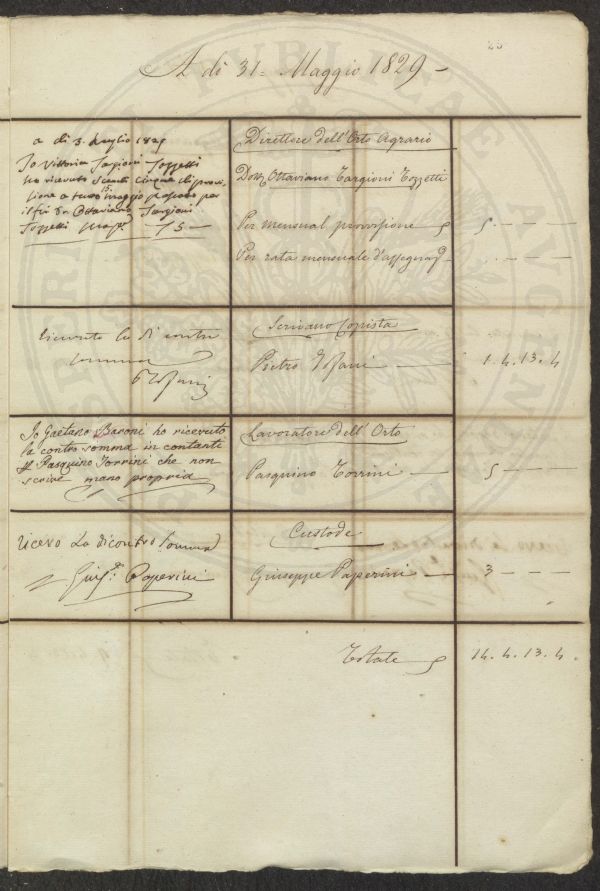 A dì 31= Maggio 1829 –
a di 3. Luglio 1829
Io Vittoria Targioni Tozzetti
ho ricevuto Scudi Cinque di provi-
sione a tutto maggio passato per
il fu Dr. Ottaviano Targioni
Tozzetti
Direttore dell'Orto Agrario
Dott. Ottaviano Targioni Tozzetti
Per mensual provvisione 5 – – –
Per rata mensuale d'assegnaz. – – – –
ricevuto la di contro
somma
Scrivano Copista
Pietro 1. 4. 13. 4
Io Gaetano Baroni ho ricevuto
la contro somma in contanti
Pasquino Torrini che non
scrive mano propria
Lavoratore dell'Orto
Pasquino Torrini — 5 – – –
ricevo La dicontro Somma
Giuse. Paperini
Custode
Giuseppe Paperini — 3 – – –
Totale 14. 4. 13. 4.